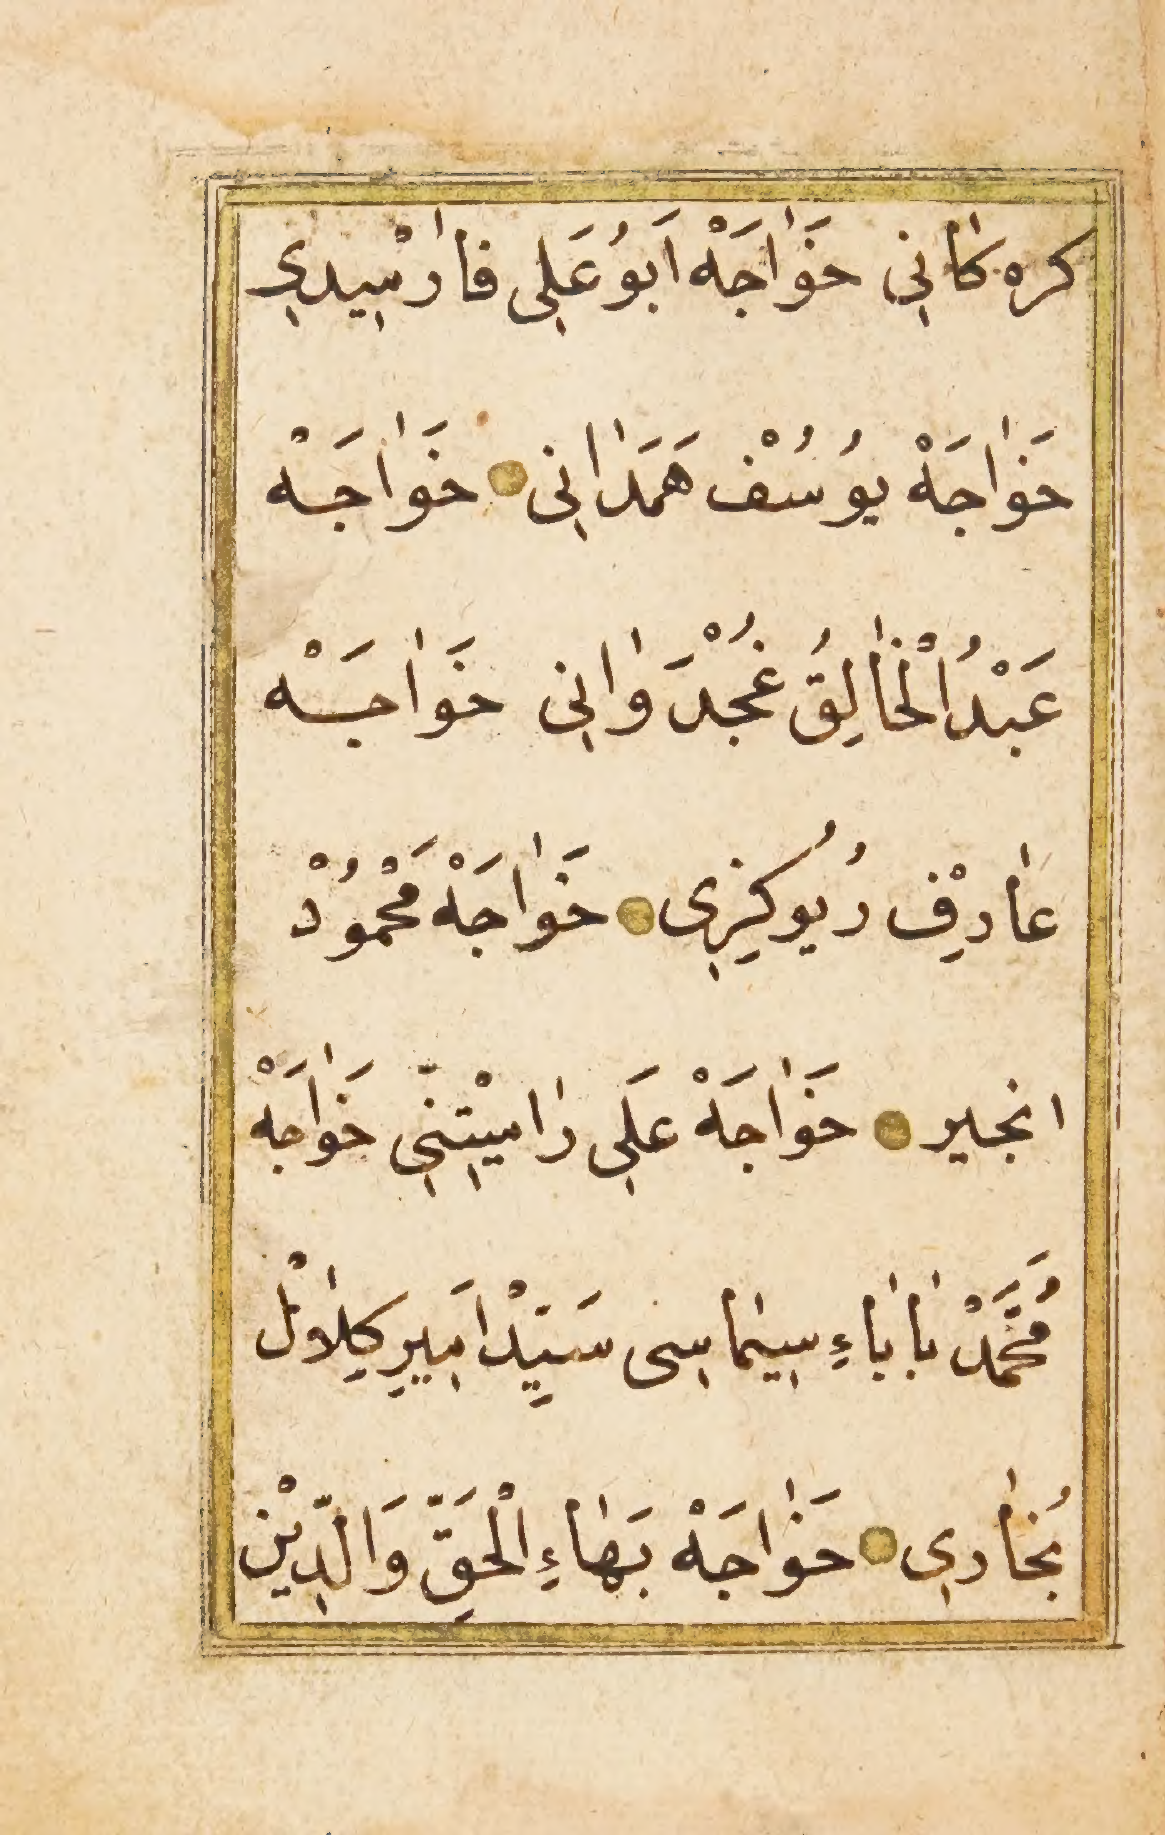 كره كٰانىِ خَوٰاجَهْ اَبوُ عَلىِ فٰارْسِيدىِ
خَوٰاجَهْ يوُسُفْ هَمَدٰانىِ خَوٰاجَهْ
عَبْدُ الْخٰالِقُ غُجْدَوٰانىِ خَوٰاجَهْ
عٰارِفْ رُيوُكِزىِ خَوٰاجَهْ مَحْمُوُدْ
انجير خَوٰاجَهْ عَلىِ رٰاميْتَنّىِ خَوٰاجَهْ
مُحَمَّدْ بٰابٰاءِ سِيمٰاسىِ سَيِّدْ اَميرِ كِلٰالْ
بُخٰارىِ خَوٰاجَهْ بَهٰاءِ الْحَقِّ وَالدّيْنِ